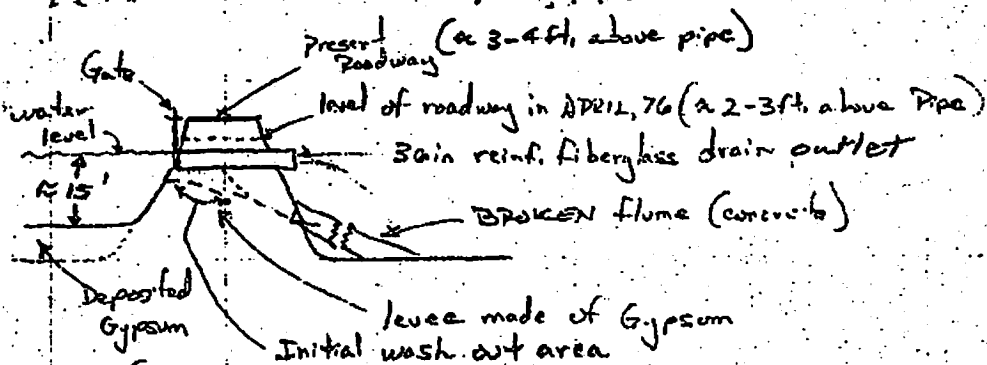 present (≈ 3-4 ft. above pipe)
Roadway
Gate
water
level
level of roadway in APRIL, 76 (≈ 2-3 ft. above Pipe)
30in reinf. fiberglass drain outlet
≈ 15'
BROKEN flume (concrete)
Deposited
Gypsum
levee made of Gypsum
Initial wash out area